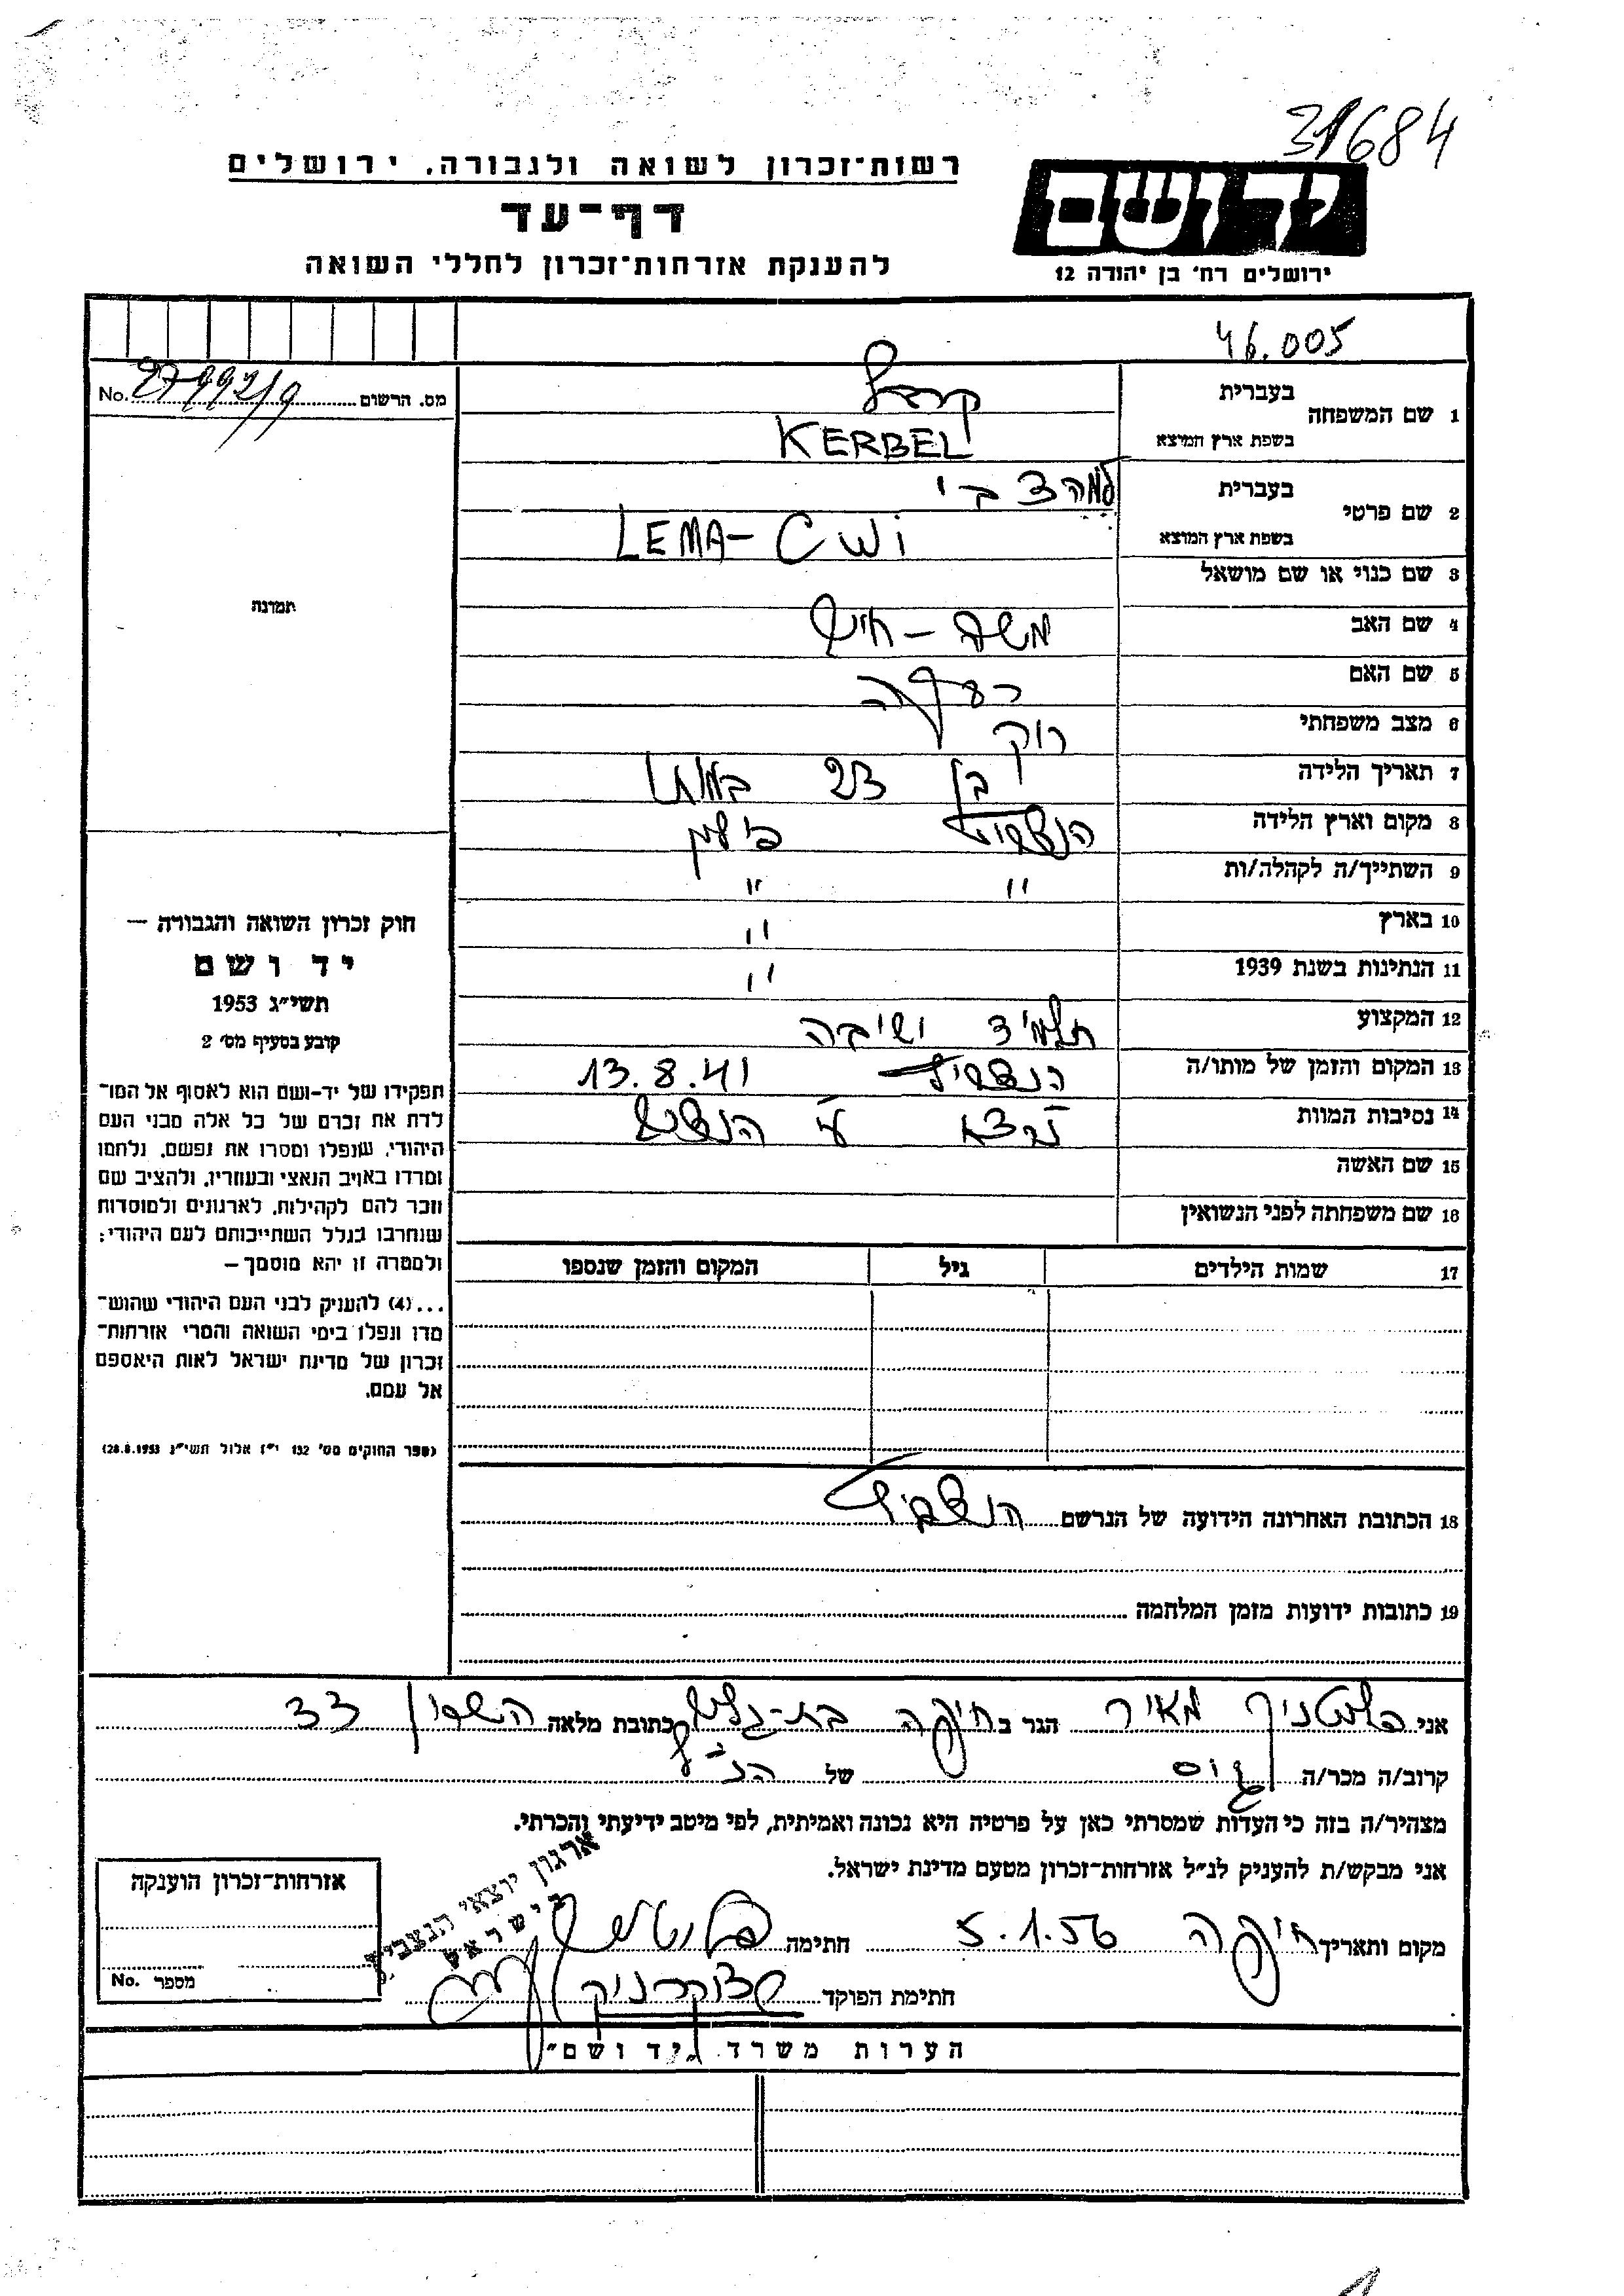 31684
רשות־זכרון לשואה ולגבורה, ירושלים
דף־עד
להענקת אזרחות־זכרון לחללי השואה
יד ושם
ירושלים רח' בן יהודה 12
46.005
מס. הרשום No. 27992/9
1 שם המשפחה
בעברית קרבל
בשפת ארץ המוצא KERBEL
2 שם פרטי
בעברית למה צבי
בשפת ארץ המוצא LEMA - CWI
3 שם כנוי או שם מושאל
4 שם האב משה - חיים
5 שם האם
6 מצב משפחתי רוק
7 תאריך הלידה בן 23 במותו
8 מקום וארץ הלידה הנצביץ פולין
9 השתייך/ה לקהלה/ות " "
10 בארץ "
11 הנתינות בשנת 1939 "
12 המקצוע תלמיד ישיבה
13 המקום והזמן של מותו/ה הנצביץ 13.8.41
14 נסיבות המוות נרצח ע"י
15 שם האשה
16 שם משפחתה לפני הנשואין
17 שמות הילדים גיל המקום והזמן שנספו
18 הכתובת האחרונה הידועה של הנרשם הנצביץ
19 כתובות ידועות מזמן המלחמה
תמונה
חוק זכרון השואה והגבורה —
יד ושם
תשי"ג 1953
קובע בסעיף מס' 2
תפקידו של יד-ושם הוא לאסוף אל המו־
לדת את זכרם של כל אלה מבני העם
היהודי, שנפלו ומסרו את נפשם, נלחמו
ומרדו באויב הנאצי ובעוזריו, ולהציב שם
וזכר להם לקהילות, לארגונים ולמוסדות
שנחרבו בגלל השתייכותם לעם היהודי;
ולמטרה זו יהא מוסמך —
...(4) להעניק לבני העם היהודי שהוש־
מדו ונפלו בימי השואה והמרי אזרחות־
זכרון של מדינת ישראל לאות היאספם
אל עמם.
(ספר החוקים מס' 132 י"ז אלול תשי"ג 28.8.1953)
אני פלוטניק מאיר הגר ב חיפה בת-גלים כתובת מלאה השרון 33
קרוב/ה מכר/ה גיס של הנ"ל
מצהיר/ה בזה כי העדות שמסרתי כאן על פרטיה היא נכונה ואמיתית, לפי מיטב ידיעתי והכרתי.
אני מבקש/ת להעניק לנ"ל אזרחות-זכרון מטעם מדינת ישראל.
מקום ותאריך חיפה 5.1.56 חתימה
חתימת הפוקד
ארגון יוצאי הנצביץ
בישראל
אזרחות-זכרון הוענקה
מספר No.
הערות משרד "יד ושם"